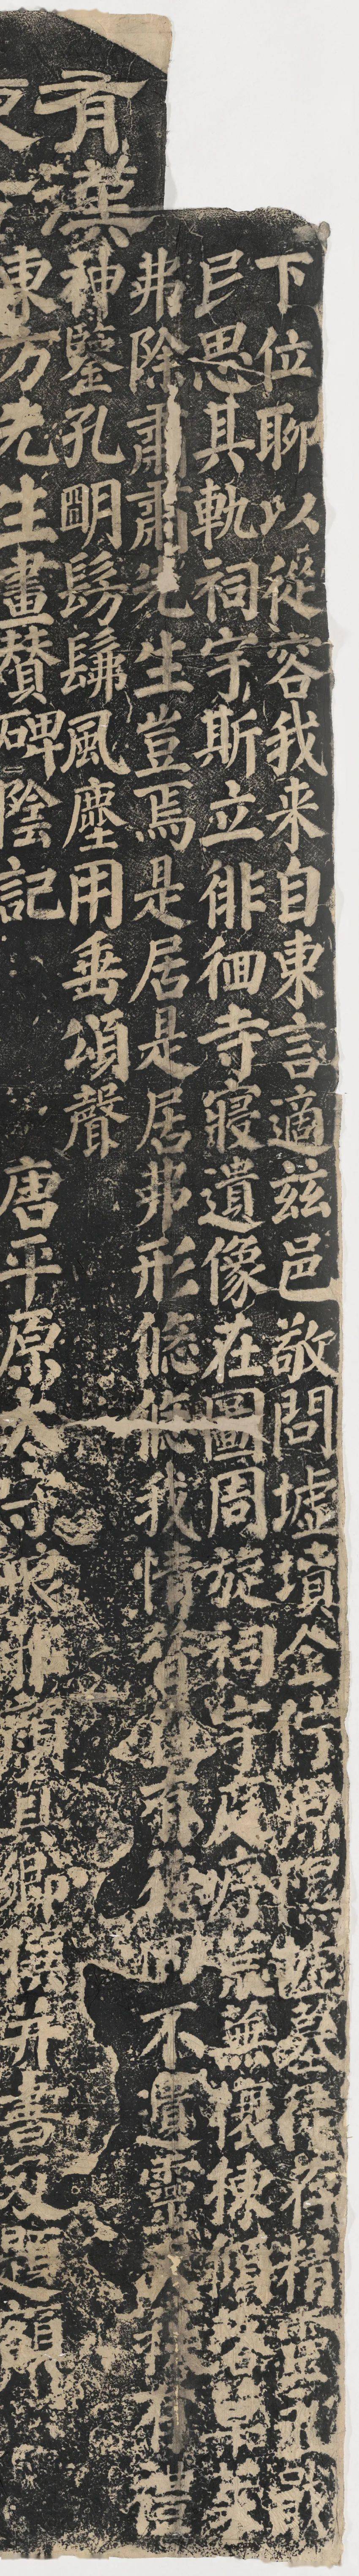 下位聊以從容我来自東言適茲邑敬問墟墳企佇原隰墟墓徒存精靈永戢
民思其軌祠宇斯立徘徊寺寢遺像在圖周旋祠宇庭序荒蕪榱棟傾落草萊
弗除肅肅先生豈焉是居是居弗形悠悠我情昔在有德罔不遺靈天秩有禮
神鑒孔明髣髴風塵用垂頌聲
有漢
東方先生畫賛碑陰記 唐平原太守琅邪顏真卿撰并書及題額